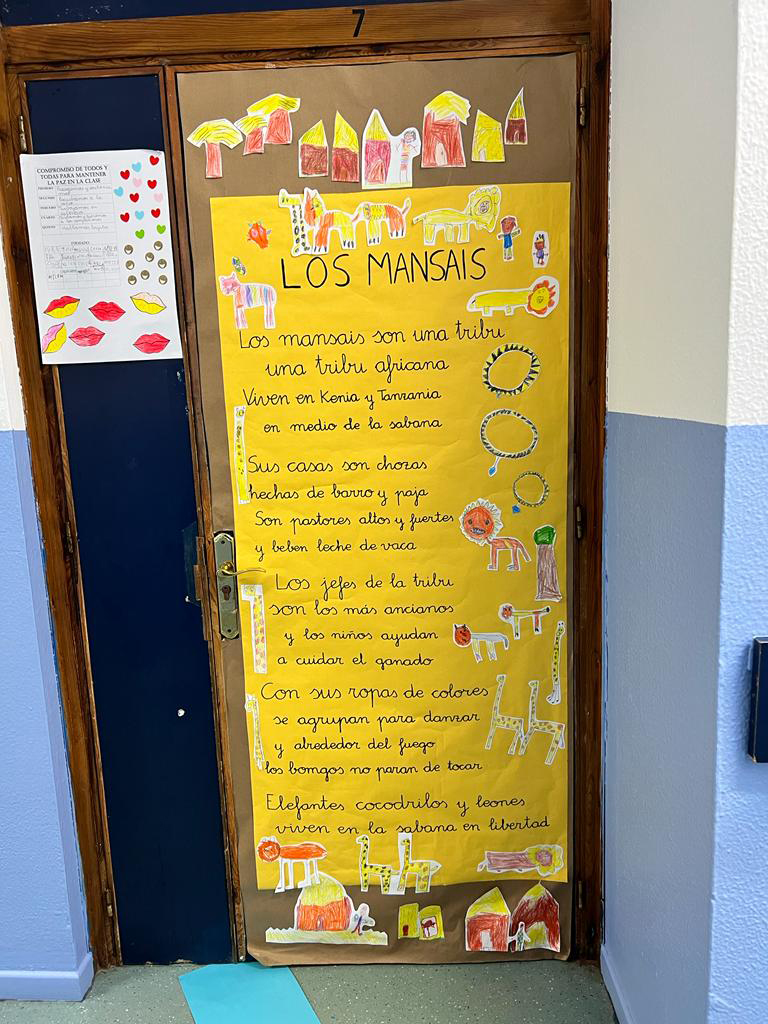 7
COMPROMISO DE TODOS Y
TODAS PARA MANTENER
LA PAZ EN LA CLASE
PRIMERO
SEGUNDO
TERCERO
CUARTO
QUINTO
FIRMADO
LOS MANSAIS
Los mansais son una tribu
una tribu africana
Viven en Kenia y Tanzania
en medio de la sabana
Sus casas son chozas
hechas de barro y paja
Son pastores altos y fuertes
y beben leche de vaca
Los jefes de la tribu
son los más ancianos
y los niños ayudan
a cuidar el ganado
Con sus ropas de colores
se agrupan para danzar
y alrededor del fuego
los bomgos no paran de tocar
Elefantes cocodrilos y leones
viven en la sabana en libertad